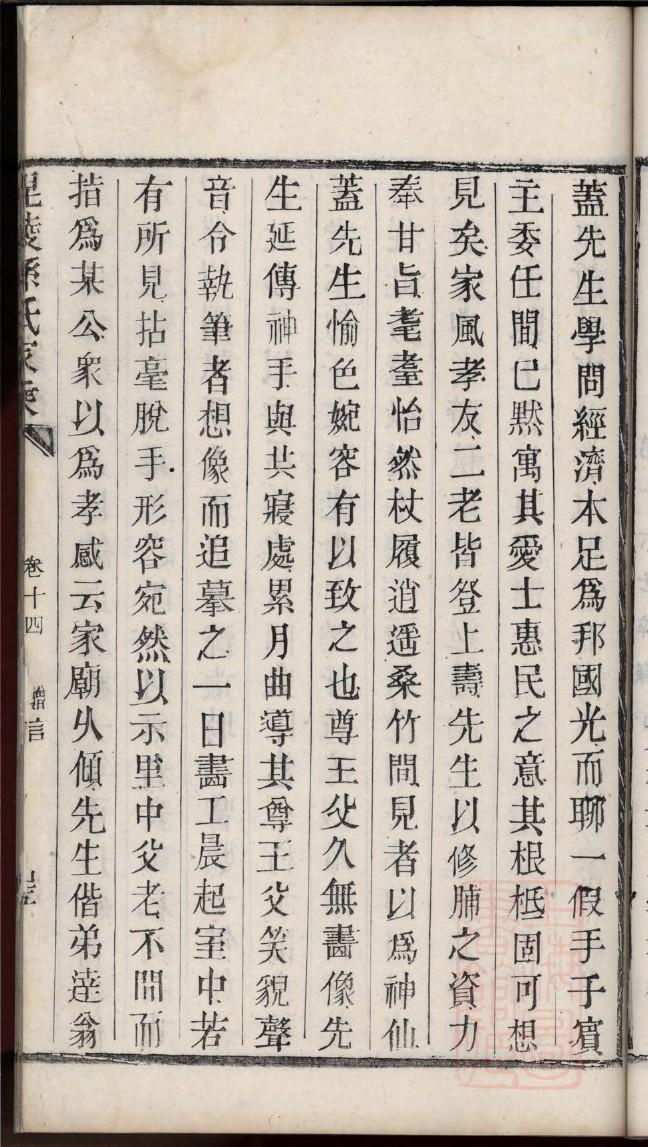 蓋先生學問經濟本足爲邦國光而聊一假手于賓
主委任間已黙寓其愛士惠民之意其根柢固可想
見矣家風孝友二老皆登上壽先生以修脯之資力
奉甘旨耄耋怡然杖履逍遥桑竹間見者以爲神仙
蓋先生愉色婉容有以致之也尊王父久無畵像先
生延傳神手與共寢處累月曲導其尊王父笑貌聲
音令執筆者想像而追摹之一日畵工晨起室中若
有所見拈毫脫手形容宛然以示里中父老不問而
指爲某公衆以爲孝感云家廟乆傾先生偕弟逵翁
毘陵孫氏家乘
卷十四
贈言